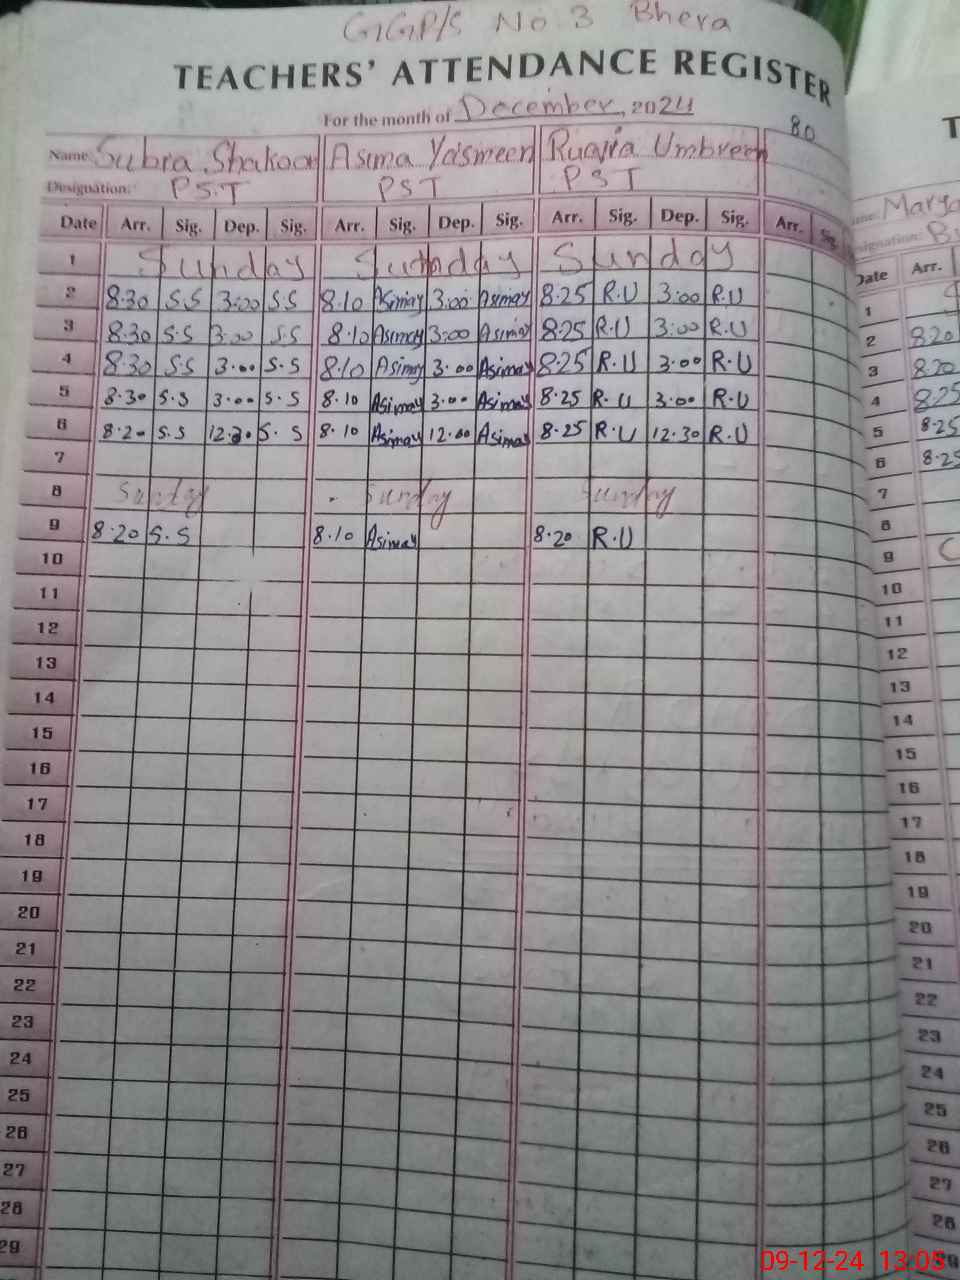 GGP/S No 3 Bhera
TEACHERS' ATTENDANCE REGISTER
For the month of December, 2024
80
Name: Subra Shakoor Asima Yasmeen Ruqia Umbreen
Designation: P.S.T PST PST
Date Arr. Sig. Dep. Sig. Arr. Sig. Dep. Sig. Arr. Sig. Dep. Sig. Arr. Sig.
1 Sunday Sunday Sunday
2 8.30 S.S 3:00 S.S 8.10 Asimay 3:00 Asimay 8.25 R.U 3:00 R.U
3 8.30 S.S 3:00 S.S 8.10 Asimay 3:00 Asimay 8.25 R.U 3:00 R.U
4 8.30 S.S 3.00 S.S 8.10 Asimay 3.00 Asimay 8.25 R.U 3.00 R.U
5 8.30 S.S 3.00 S.S 8.10 Asimay 3.00 Asimay 8.25 R.U 3.00 R.U
6 8.20 S.S 12.30 S.S 8.10 Asimay 12.00 Asimay 8.25 R.U 12.30 R.U
7
8 Sunday Sunday Sunday
9 8.20 S.S 8.10 Asimay 8.20 R.U
10
11
12
13
14
15
16
17
18
19
20
21
22
23
24
25
26
27
28
29
T
Name: Marya
Designation:
Date Arr.
1
2 8.20
3 8.20
4 8.25
5 8.25
6 8.25
7
8
9
10
11
12
13
14
15
16
17
18
19
20
21
22
23
24
25
26
27
28
29
09-12-24 13:05